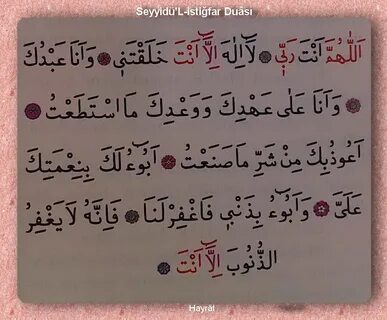 Seyyidü'L-İstiğfar Duâsı
اَللّٰهُمَّ اَنْتَ رَبِّي لَا اِلٰهَ اِلَّا اَنْتَ خَلَقْتَنِي وَاَنَا عَبْدُكَ
وَاَنَا عَلٰى عَهْدِكَ وَوَعْدِكَ مَا اسْتَطَعْتُ
اَعُوذُ بِكَ مِنْ شَرِّ مَا صَنَعْتُ اَبُوءُ لَكَ بِنِعْمَتِكَ
عَلَيَّ وَاَبُوءُ بِذَنْبِي فَاغْفِرْ لَنَا فَاِنَّهُ لَا يَغْفِرُ
الذُّنُوبَ اِلَّا اَنْتَ
Hayrât